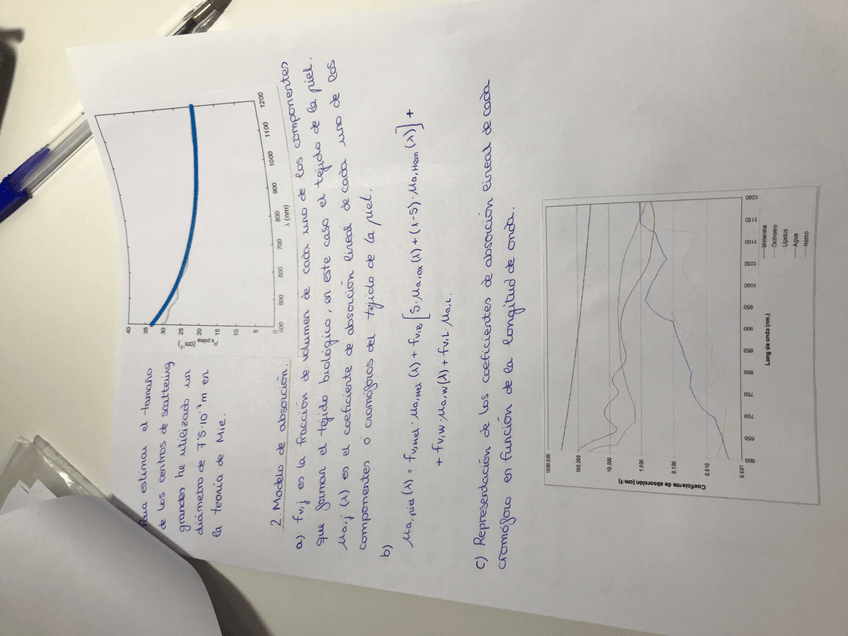 Para estimar el tamaño
de los centros de scattering
grandes he utilizado un
diámetro de 7'5·10⁻⁷m en
la teoría de Mie.
40
35
30
25
20
15
10
5
0
400 500 600 700 800 900 1000 1100 1200
λ (nm)
2. Modelo de absorción.
a) fv,j es la fracción de volumen de cada uno de los componentes
que forman el tejido biológico, en este caso el tejido de la piel.
μa,j (λ) es el coeficiente de absorción lineal de cada uno de los
componentes o cromóforos del tejido de la piel.
b)
μa,piel (λ) = fv,mel · μa,mel (λ) + fv,B [S·μa,ox (λ) + (1-S)·μa,Hem (λ)] +
+ fv,W μa,W (λ) + fv,L μa,L.
c) Representación de los coeficientes de absorción lineal de cada
cromóforo en función de la longitud de onda.
Coeficiente de absorción (cm-1)
1000.000
100.000
10.000
1.000
0.100
0.010
0.001
600 650 700 750 800 850 900 950 1000 1050 1100 1150 1200
Long de onda (nm.)
Melanina
Oxihemo
Lípidos
Agua
Hemo